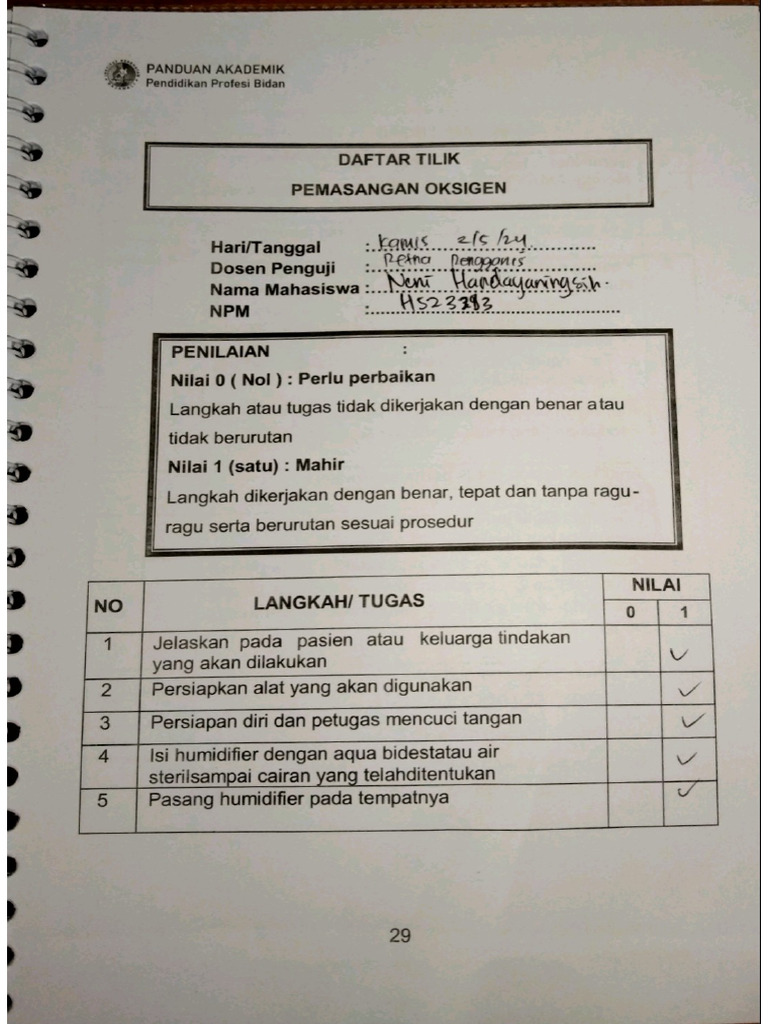 PANDUAN AKADEMIK
Pendidikan Profesi Bidan
DAFTAR TILIK
PEMASANGAN OKSIGEN
Hari/Tanggal : Kamis 2/5/24
Dosen Penguji : Retna
Nama Mahasiswa : Neni Handayaningsih.
NPM : HS23383
PENILAIAN :
Nilai 0 ( Nol ) : Perlu perbaikan
Langkah atau tugas tidak dikerjakan dengan benar atau
tidak berurutan
Nilai 1 (satu) : Mahir
Langkah dikerjakan dengan benar, tepat dan tanpa ragu-
ragu serta berurutan sesuai prosedur
NO LANGKAH/ TUGAS NILAI
0 1
1 Jelaskan pada pasien atau keluarga tindakan
yang akan dilakukan ✓
2 Persiapkan alat yang akan digunakan ✓
3 Persiapan diri dan petugas mencuci tangan ✓
4 Isi humidifier dengan aqua bidestatau air
sterilsampai cairan yang telahditentukan ✓
5 Pasang humidifier pada tempatnya ✓
29